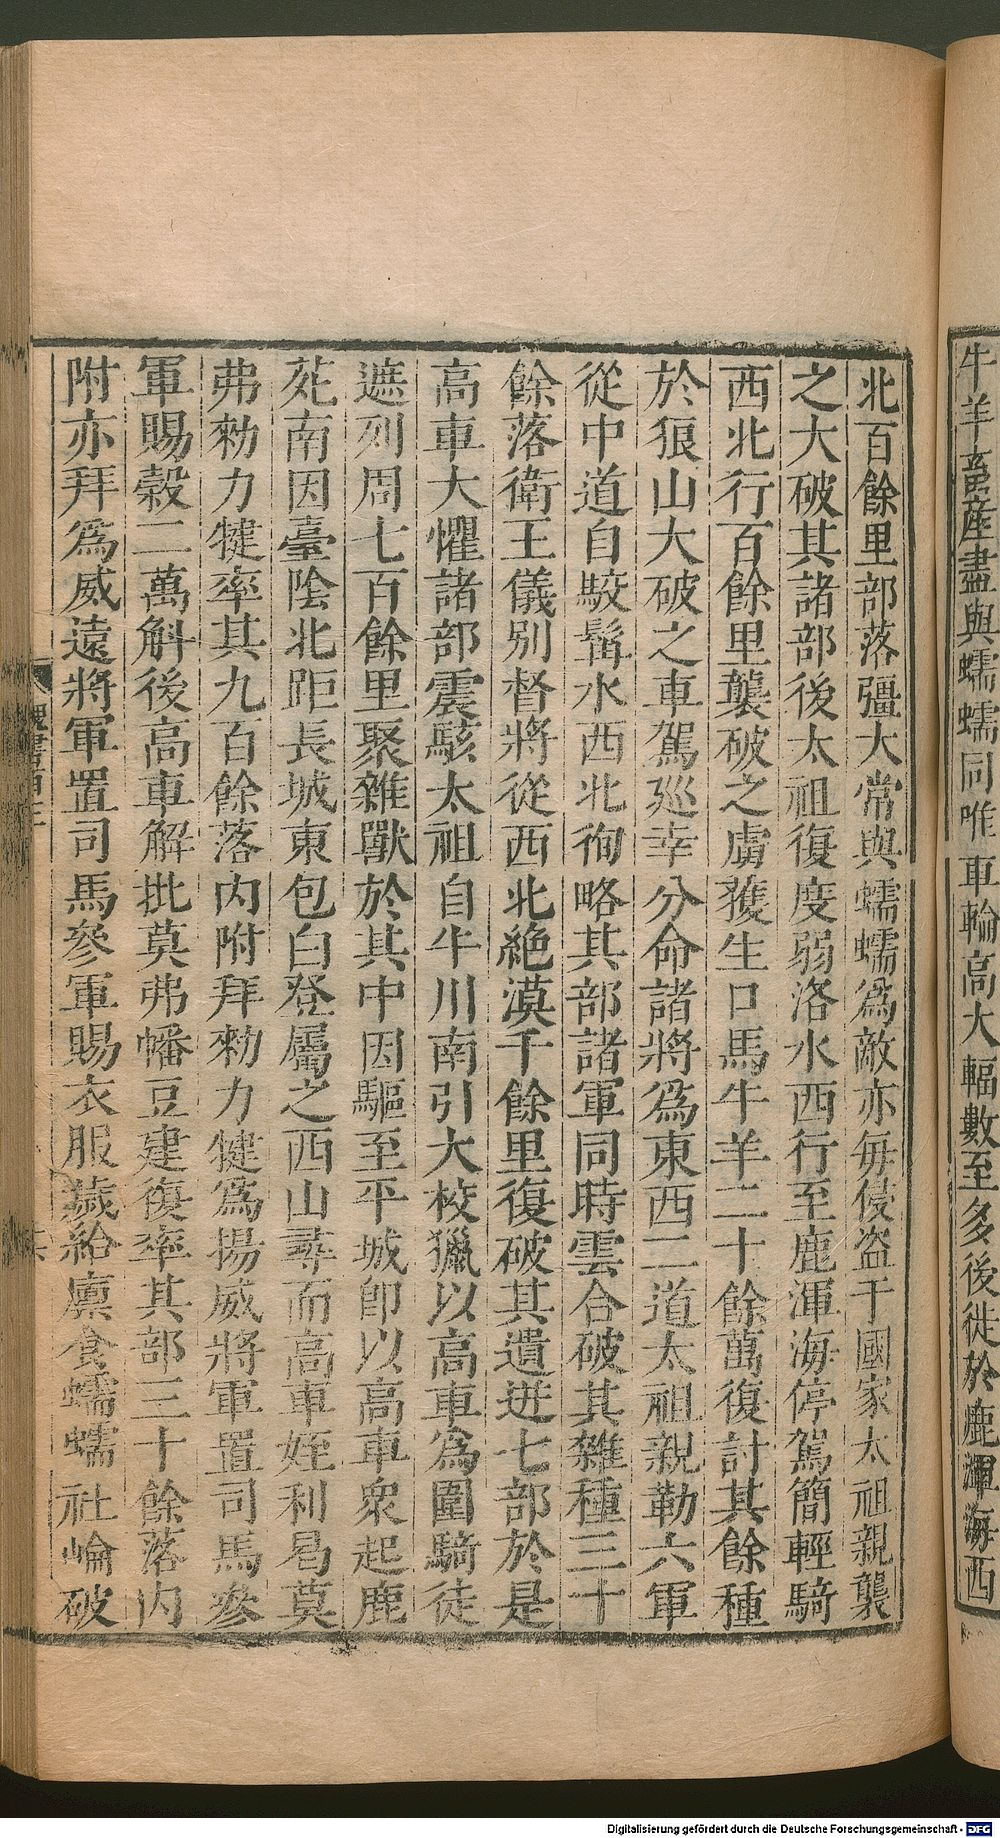 牛羊畜産盡與蠕蠕同唯車輪高大輻數至多後徙於鹿渾海西
北百餘里部落彊大常與蠕蠕爲敵亦毎侵盗于國家太祖親襲
之大破其諸部後太祖復度弱洛水西行至鹿渾海停駕簡輕騎
西北行百餘里襲破之虜獲生口馬牛羊二十餘萬復討其餘種
於狼山大破之車駕廵幸分命諸將爲東西二道太祖親勒六軍
從中道自駮髥水西北徇略其部諸軍同時雲合破其雜種三十
餘落衛王儀别督將從西北絶漠千餘里復破其遺迸七部於是
高車大懼諸部震駭太祖自牛川南引大校獵以高車爲圍騎徒
遮列周七百餘里聚雜獸於其中因驅至平城卽以高車衆起鹿
苑南因臺陰北距長城東包白登屬之西山尋而高車姪利曷莫
弗勑力犍率其九百餘落内附拜勑力犍爲揚威將軍置司馬叅
軍賜穀二萬斛後高車解批莫弗幡豆建復率其部三十餘落内
附亦拜爲威遠將軍置司馬叅軍賜衣服歲給廪食蠕蠕社崘破
Digitalisierung gefördert durch die Deutsche Forschungsgemeinschaft - DFG